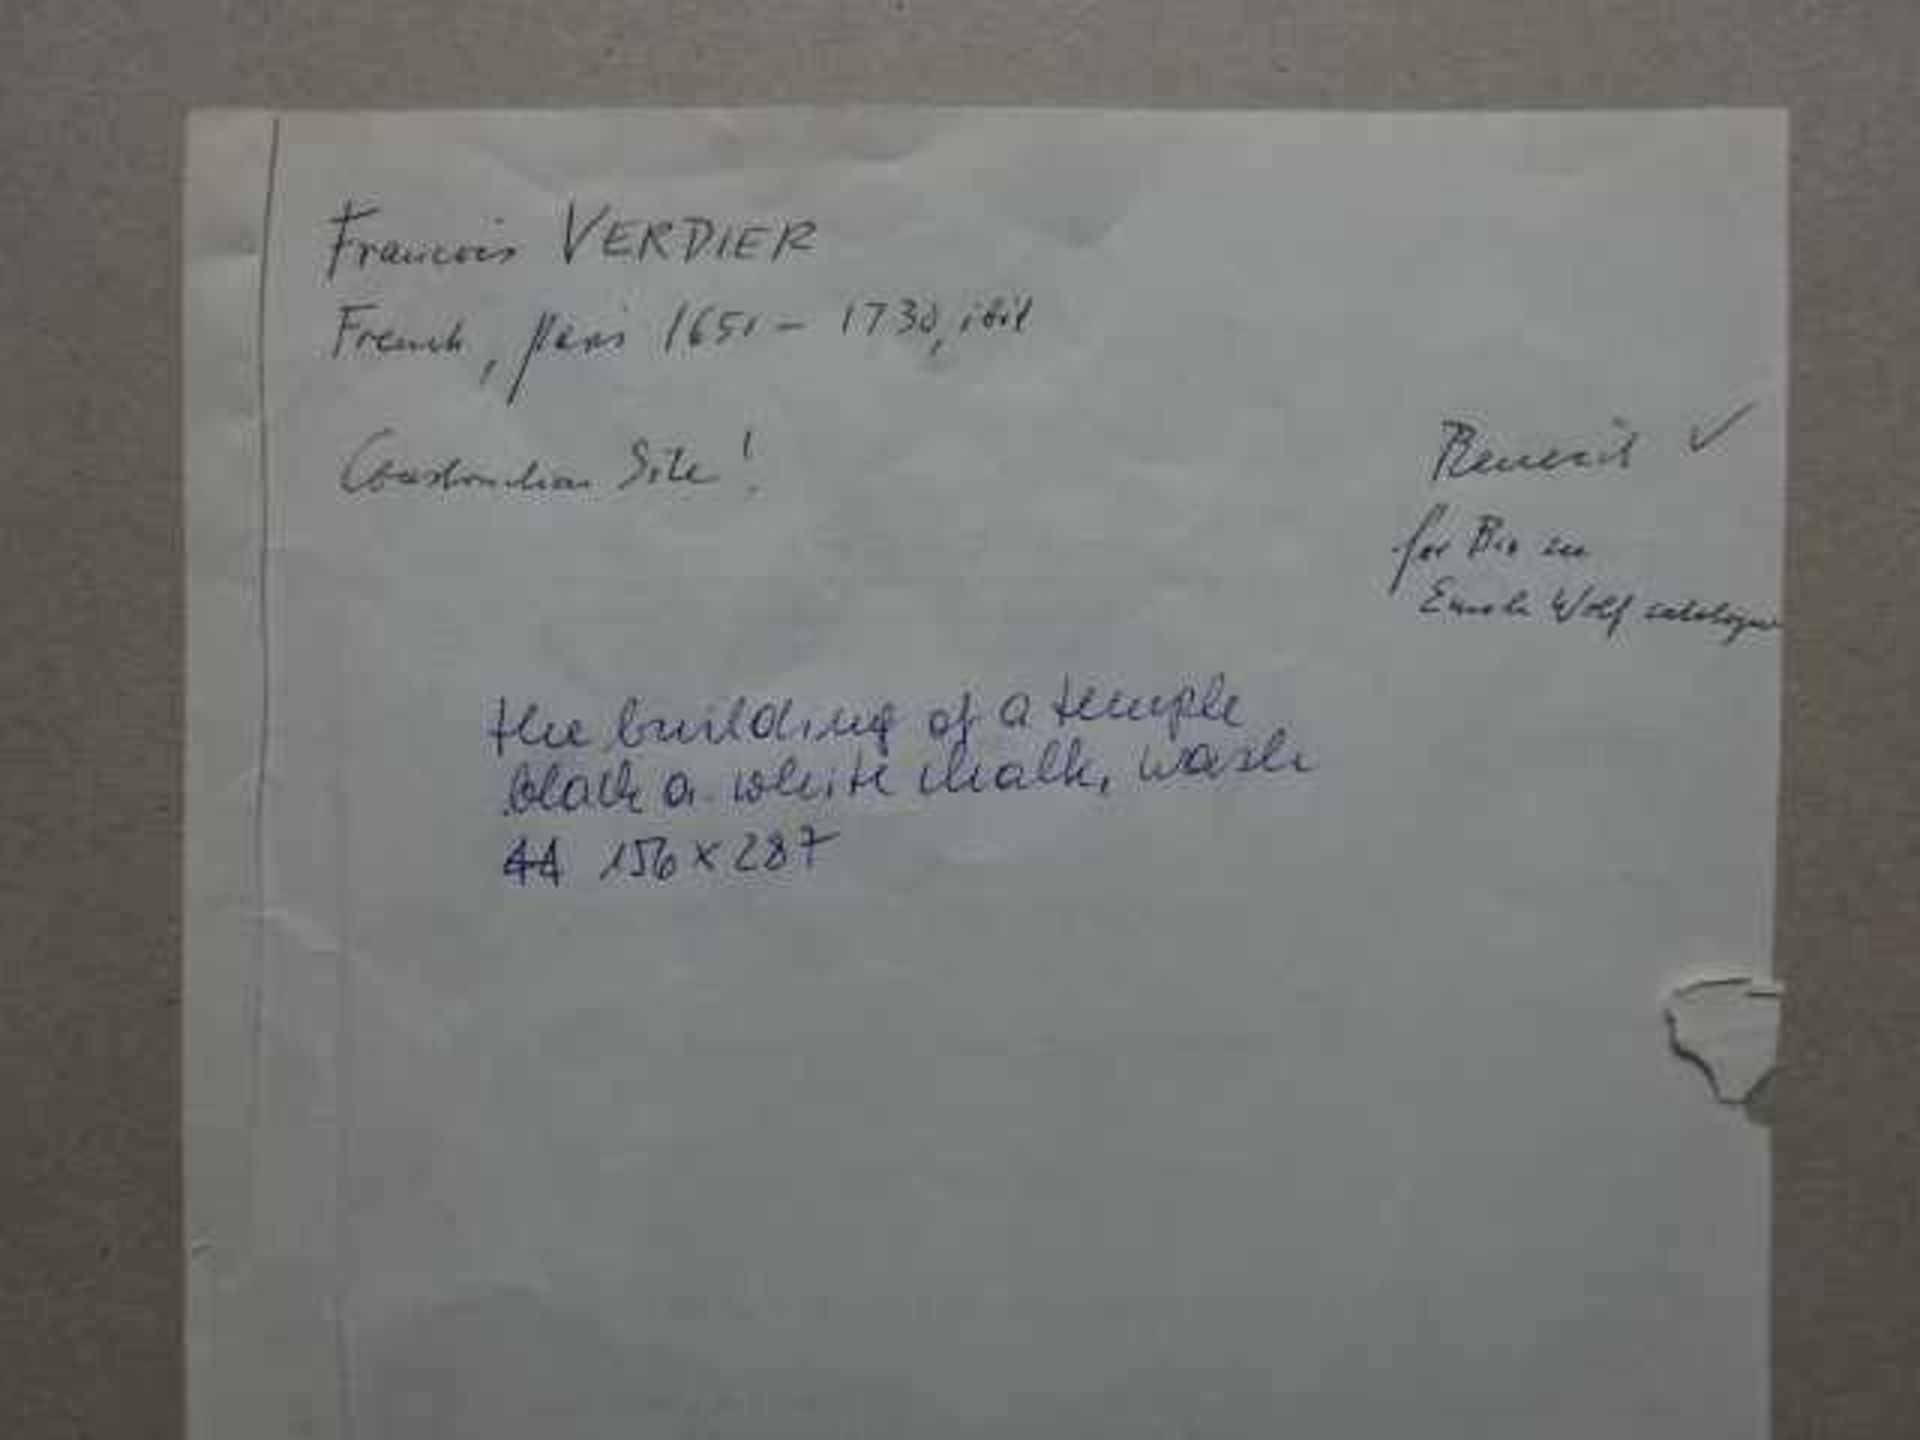 Francois VERDIER
French, Paris 1651 - 1730, ibid
Construction Site!
Benezit ✓
for Bio see
Emile Wolf catalogue
the building of a temple
black a. white chalk, wash
44 156 x 287